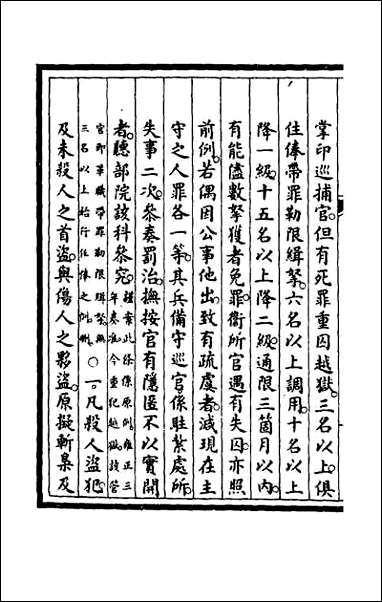 掌印巡捕官但有死罪重囚越獄三名以上俱
住俸帶罪勒限緝拏六名以上調用十名以上
降一級十五名以上降二級通限三箇月以內
有能儘數拏獲者免罪衞所官遇有失囚亦照
前例若偶因公事他出致有疏虞者減現在主
守之人罪各一等其兵備守巡官係駐紮處所
失事二次叅奏罰治撫按官有隱匿不以實開
者聽部院該科叅究謹案此條係原例雍正三
年奏准今重犯越獄該管
官即革職帶罪勒限緝拏無
三名以上始行住俸之例○一凡殺人盜犯
及未殺人之首盜與傷人之夥盜原擬斬梟及